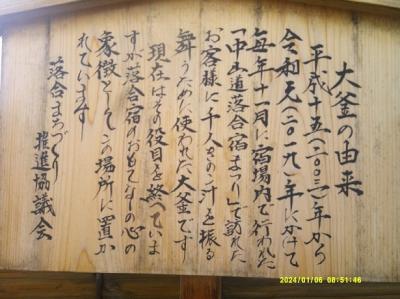 大釜の由来
平成十五(二〇〇三)年から
令和元(二〇一九)年にかけて
毎年十一月に宿場内で行われた
「中山道落合宿まつり」で訪れた
お客様に千人きのこ汁を振る
舞うために使われた大釜です
現在はその役目を終えていま
すが落合宿のおもてなしの心の
象徴としてこの場所に置か
れています
落合まちづくり
推進協議会
2024/01/06 08:51:46